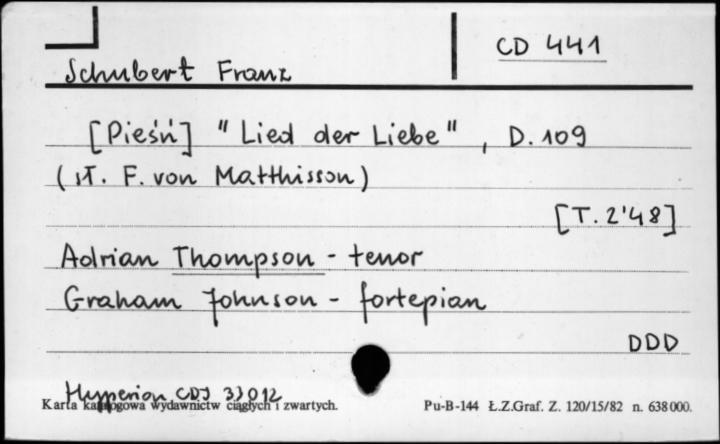 CD 441
Schubert Franz
[Pieśń] "Lied der Liebe", D.109
(sł. F. von Matthisson)
[T. 2'48]
Adrian Thompson - tenor
Graham Johnson - fortepian
DDD
Hyperion CDJ 33012
Karta katalogowa wydawnictw ciągłych i zwartych. Pu-B-144 Ł.Z.Graf. Z. 120/15/82 n. 638000.